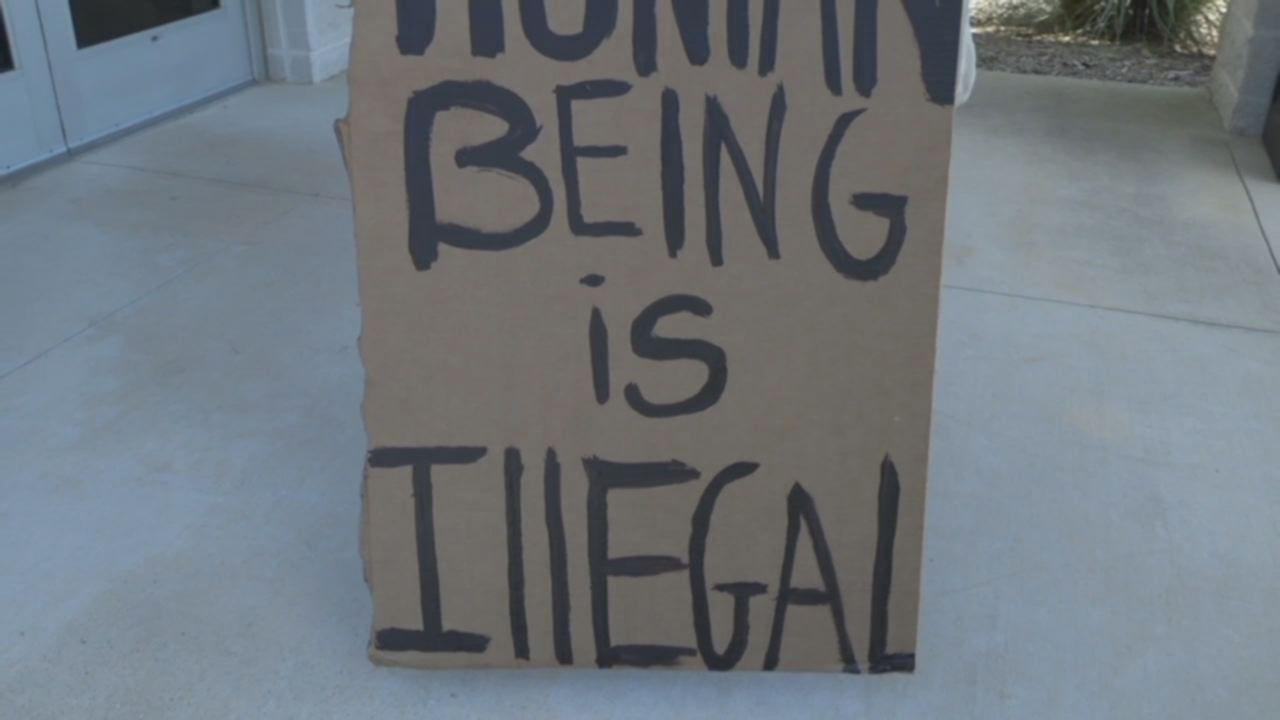 HUMAN
BEING
is
IllEGAL